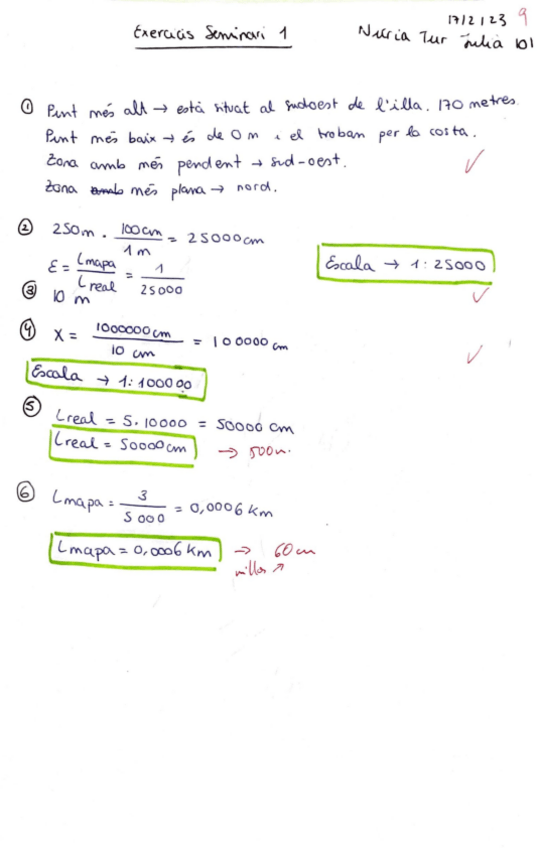 17/2/23 9
Exercicis Seminari 1
Núria Tur Julià 101
① Punt més alt → està situat al sudoest de l'illa. 170 metres.
Punt més baix → és de 0 m i el troban per la costa.
Zona amb més pendent → sud-oest.
Zona amb més plana → nord.
② 250m . 100cm / 1m = 25000cm
E = Lmapa / Lreal = 1 / 25000
Escala → 1:25000
③ 10 m
④ X = 1000000cm / 10 cm = 100000 cm
Escala → 1:100000
⑤ Lreal = 5.10000 = 50000 cm
Lreal = 50000cm → 500m.
⑥ Lmapa = 3 / 5000 = 0,0006 km
Lmapa = 0,0006 km → 60cm
millor ↗